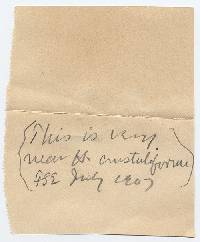 (This is very
near H. crustuliforme
FSE July 1907)